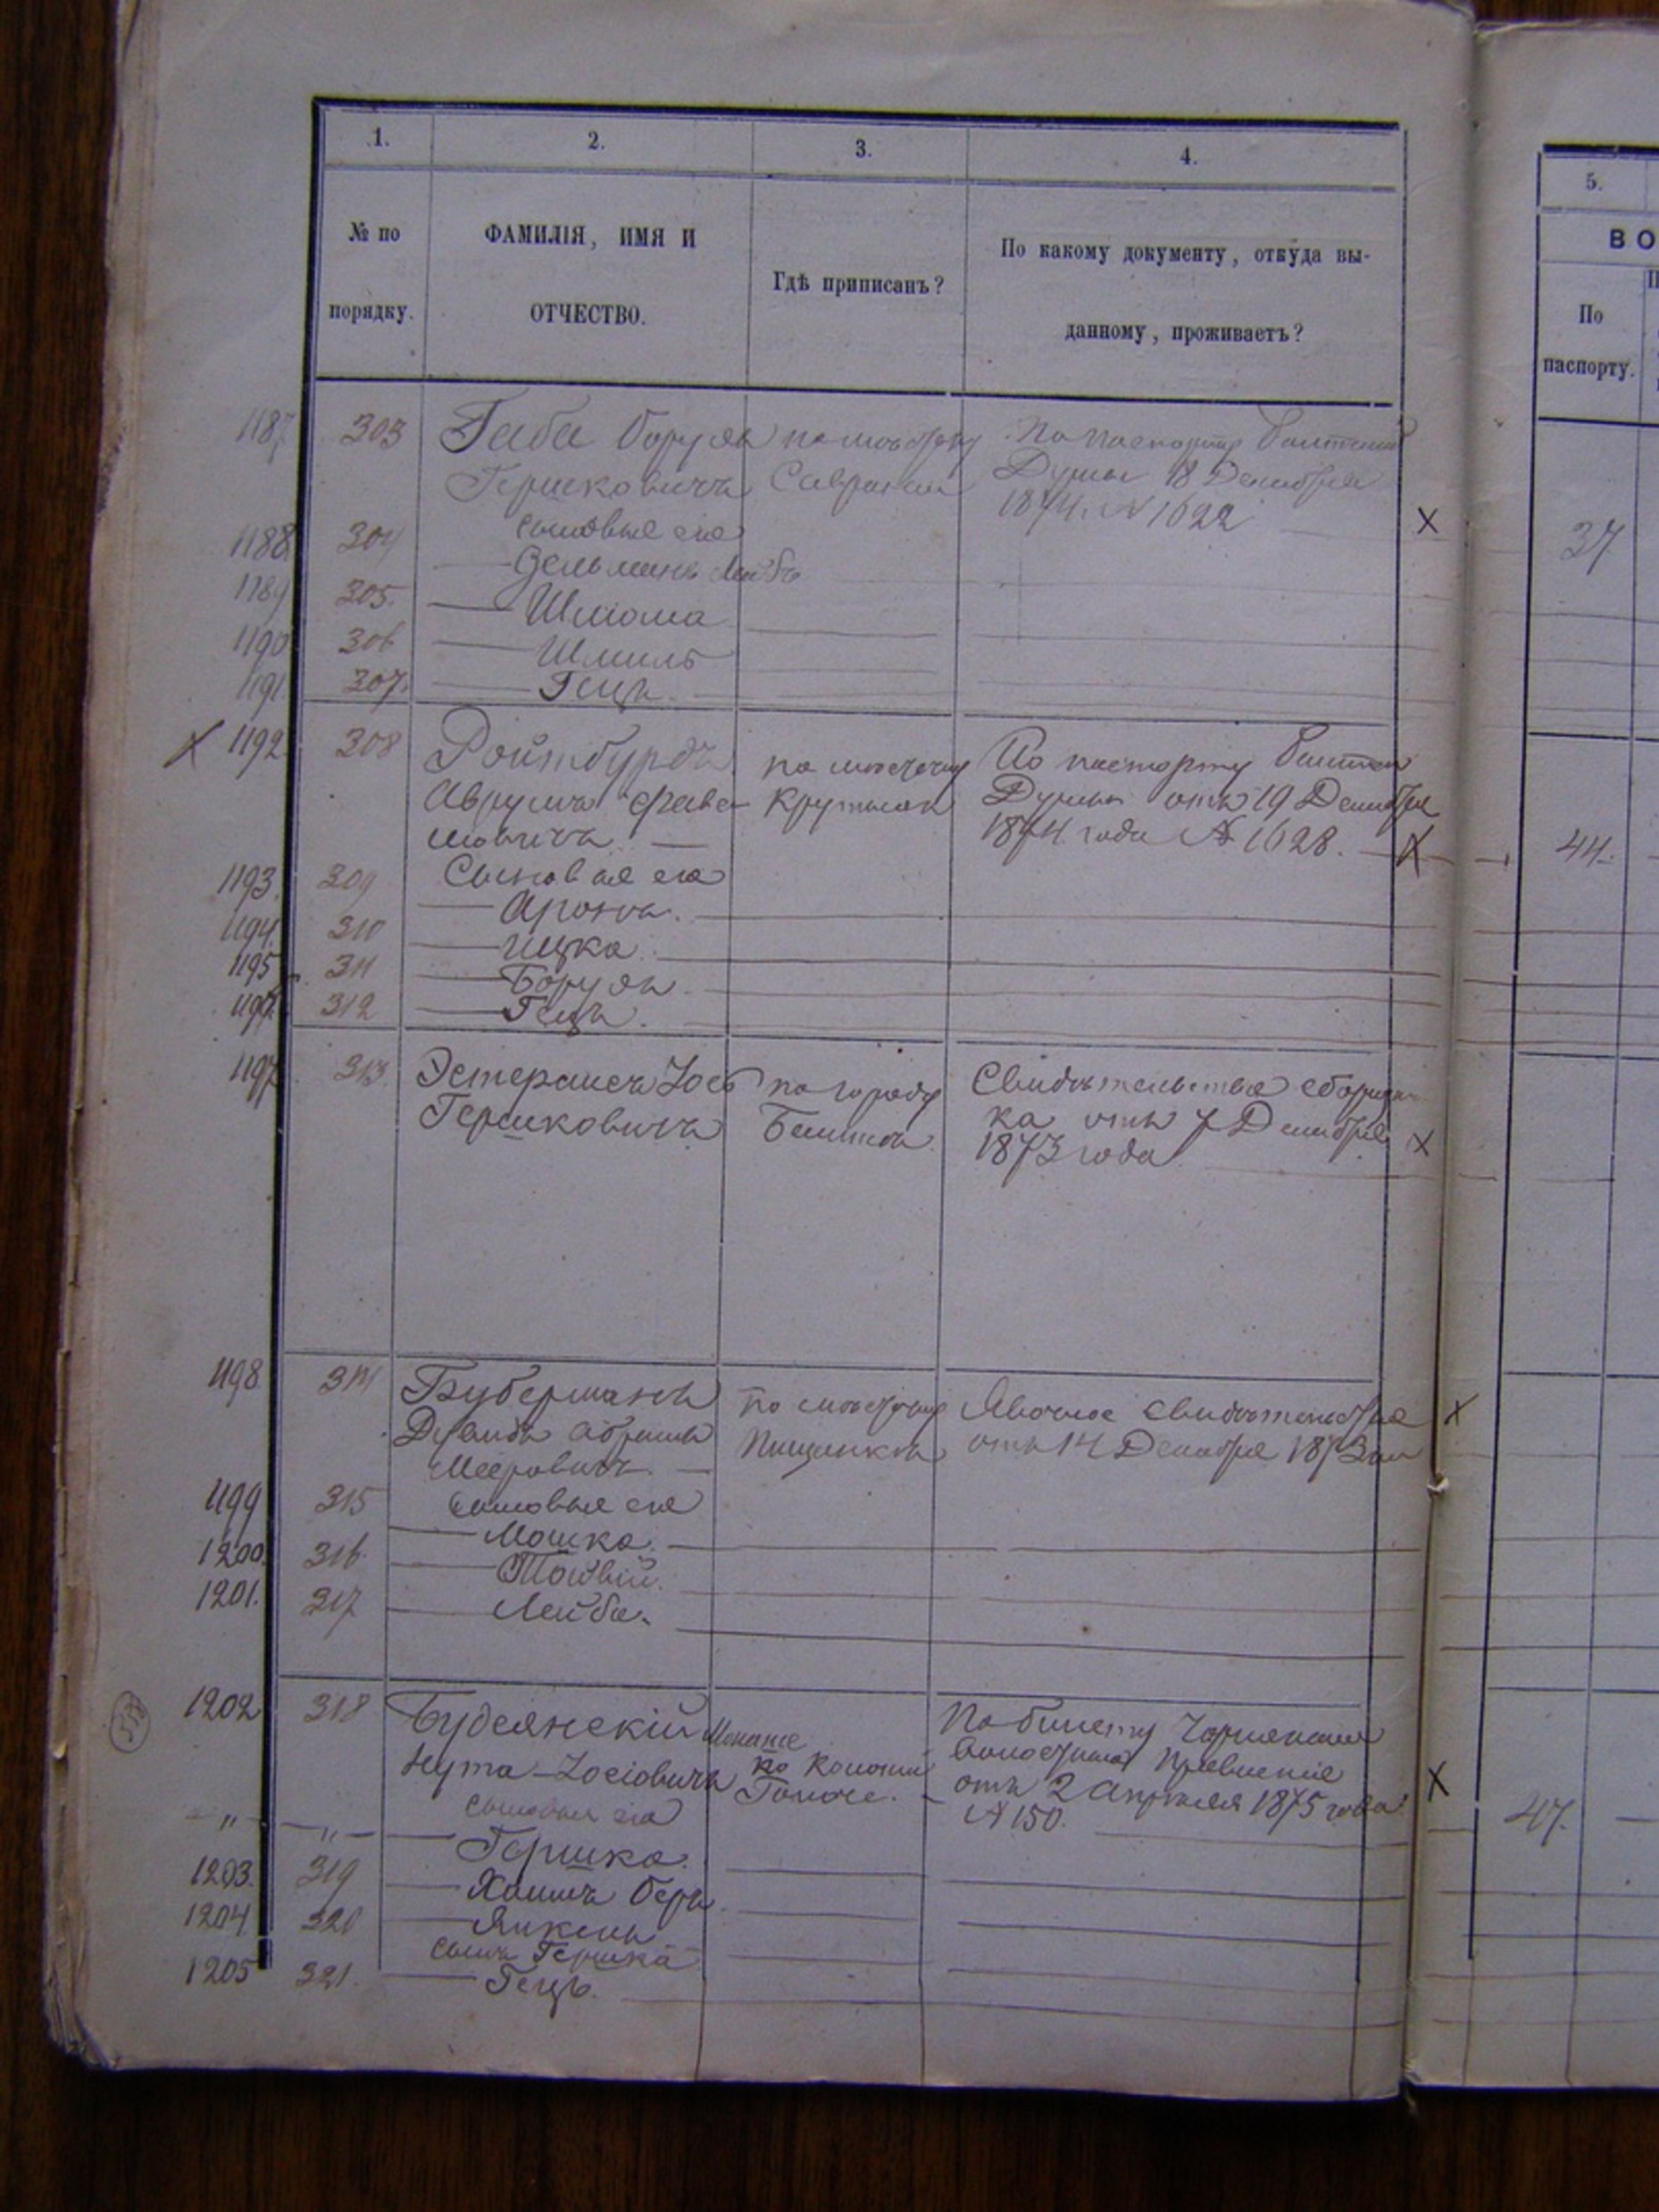 1. 2. 3. 4.
№ по порядку.
ФАМИЛІЯ, ИМЯ И ОТЧЕСТВО.
Гдѣ приписанъ?
По какому документу, откуда вы-
данному, проживаетъ?
5.
ВО
По
паспорту.
1187 303 Габа Борухъ по мѣстечку По паспорту Балтской
Гершковичъ Саврани Думы 18 Декабря
1874 № 1622 X
37
1188 304 сыновья его
Зельманъ Лейбъ
1189 305. Шлиома
1190 306 Шмиль
1191 307. Гецъ.
X 1192 308 Ройтбурдъ по мѣстечку По паспорту Балтской
Аврумъ Фраве- Крутымъ Думы отъ 19 Декабря
мовичъ 1874 года № 1628. X
44.
1193. 309 Сыновья его
Аронъ.
1194. 310 Ицко.
1195 311 Борухъ.
1196 312 Гецъ.
1197 313. Эстераихъ Іось по городу Свидѣтельство сборщи-
Гершковичъ Балтѣ. ка отъ 7 Декабря X
1873 года
1198 314 Буберманъ по мѣстечку Явочное свидѣтельство X
Дувидъ Абрамъ Пищанкѣ отъ 14 Декабря 1873
Мееровичъ.
1199 315 сыновья его
Мошко.
1200. 316. Тойвій.
1201. 317 Лейба.
1202 318 Будеянскій По билету
Нута-Іосіовичъ по колоніи Правленіе
отъ 2 Апрѣля 1875 года X
сыновья его № 150.
47.
—„— —„— Гершко.
1203. 319 Хаимъ Беръ.
1204 320 Янкель
сынъ Гершка
1205 321. Гецъ.